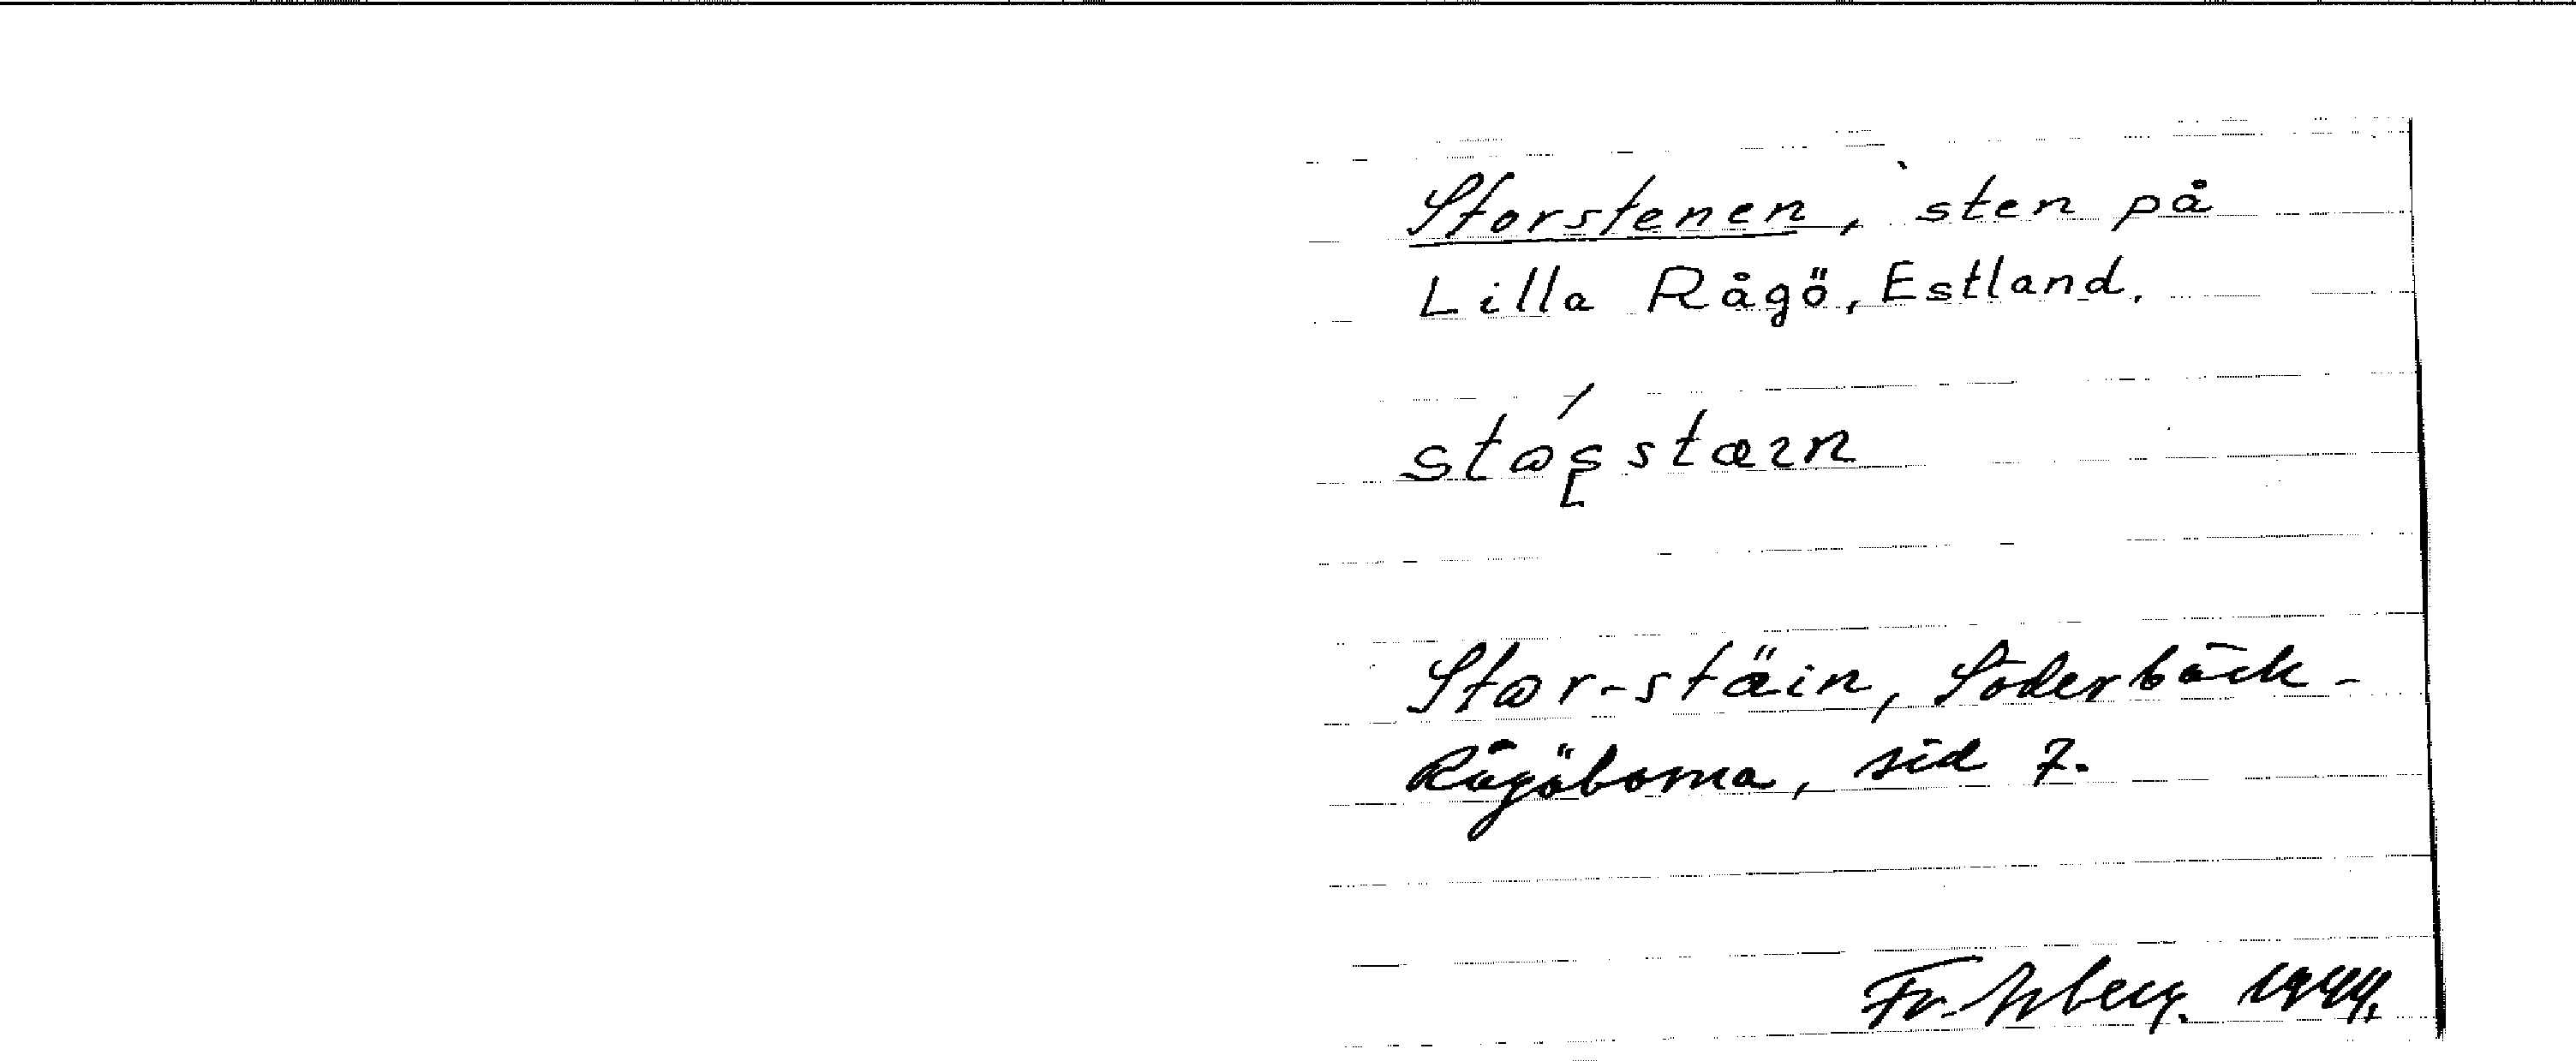 Storstenen, sten på
Lilla Rågö, Estland.
stɷ́ʂstæɪn
Stɷr-stäin, Söderbäck-
Rågöborna, sid 7.
1944.